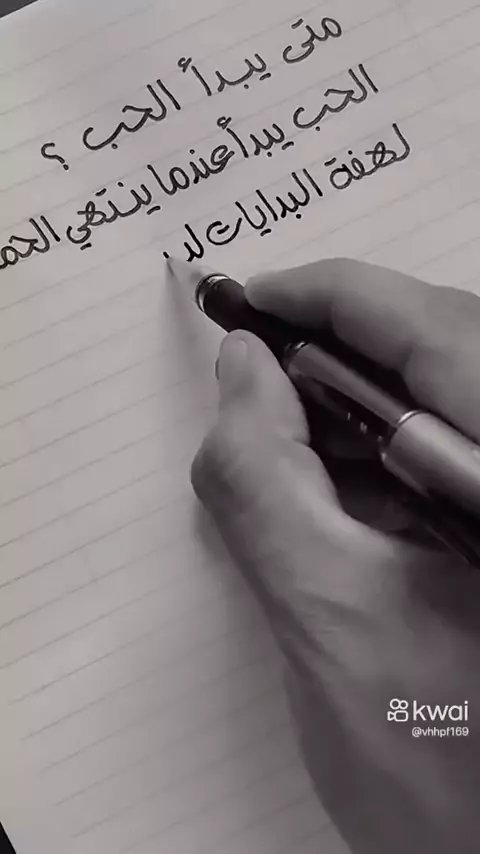 متى يبدأ الحب ؟
الحب يبدأ عندما ينتهي
لهفة البدايات
kwai
@vhhpf169